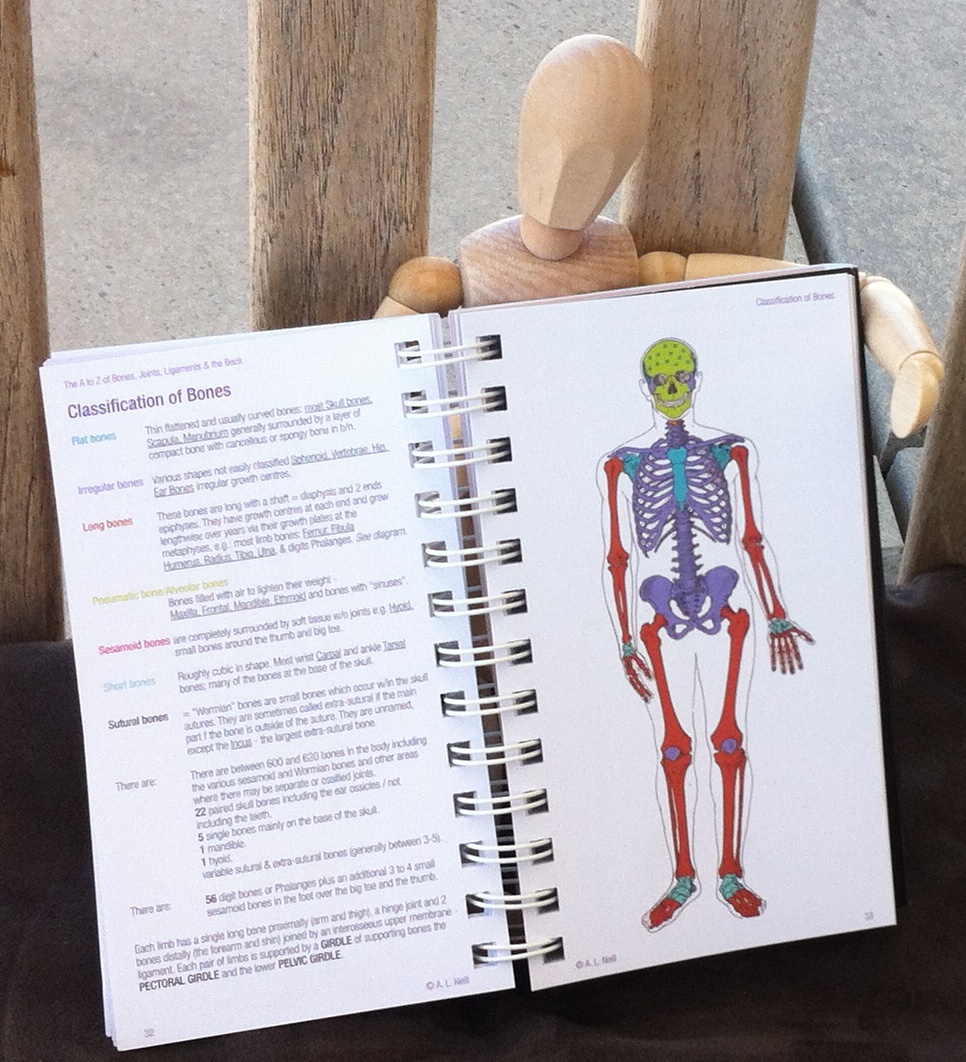 The A to Z of Bones, Joints, Ligaments & the Back
Classification of Bones
Flat bones
Thin flattened and usually curved bones; most Skull bones,
Scapula, Manubrium generally surrounded by a layer of
compact bone with cancellous or spongy bone in b/n.
Irregular bones
Various shapes not easily classified Sphenoid, Vertebrae, Hip,
Ear Bones irregular growth centres.
Long bones
These bones are long with a shaft = diaphysis and 2 ends
epiphyses. They have growth centres at each end and grow
lengthwise over years via their growth plates at the
metaphyses, e.g.: most limb bones: Femur, Fibula
Humerus, Radius, Tibia, Ulna, & digits Phalanges. See diagram.
Pneumatic bone/Alveolar bones
Bones filled with air to lighten their weight -
Maxilla, Frontal, Mandible, Ethmoid and bones with "sinuses".
Sesamoid bones are completely surrounded by soft tissue w/o joints e.g. Hyoid,
small bones around the thumb and big toe.
Short bones
Roughly cubic in shape. Most wrist Carpal and ankle Tarsal
bones; many of the bones at the base of the skull.
Sutural bones
= "Wormian" bones are small bones which occur w/in the skull
sutures. They are sometimes called extra-sutural if the main
part f the bone is outside of the suture. They are unnamed,
except the Incus - the largest extra-sutural bone.
There are:
There are between 600 and 620 bones in the body including
the various sesamoid and Wormian bones and other areas
where there may be separate or ossified joints.
22 paired skull bones including the ear ossicles / not
including the teeth.
5 single bones mainly on the base of the skull.
1 mandible.
1 hyoid.
variable sutural & extra-sutural bones (generally between 3-5).
There are:
56 digit bones or Phalanges plus an additional 3 to 4 small
sesamoid bones in the foot over the big toe and the thumb.
Each limb has a single long bone proximally (arm and thigh), a hinge joint and 2
bones distally (the forearm and shin) joined by an interosseous upper membrane
ligament. Each pair of limbs is supported by a GIRDLE of supporting bones the
PECTORAL GIRDLE and the lower PELVIC GIRDLE.
© A. L. Neill
32
Classification of Bones
© A. L. Neill
33